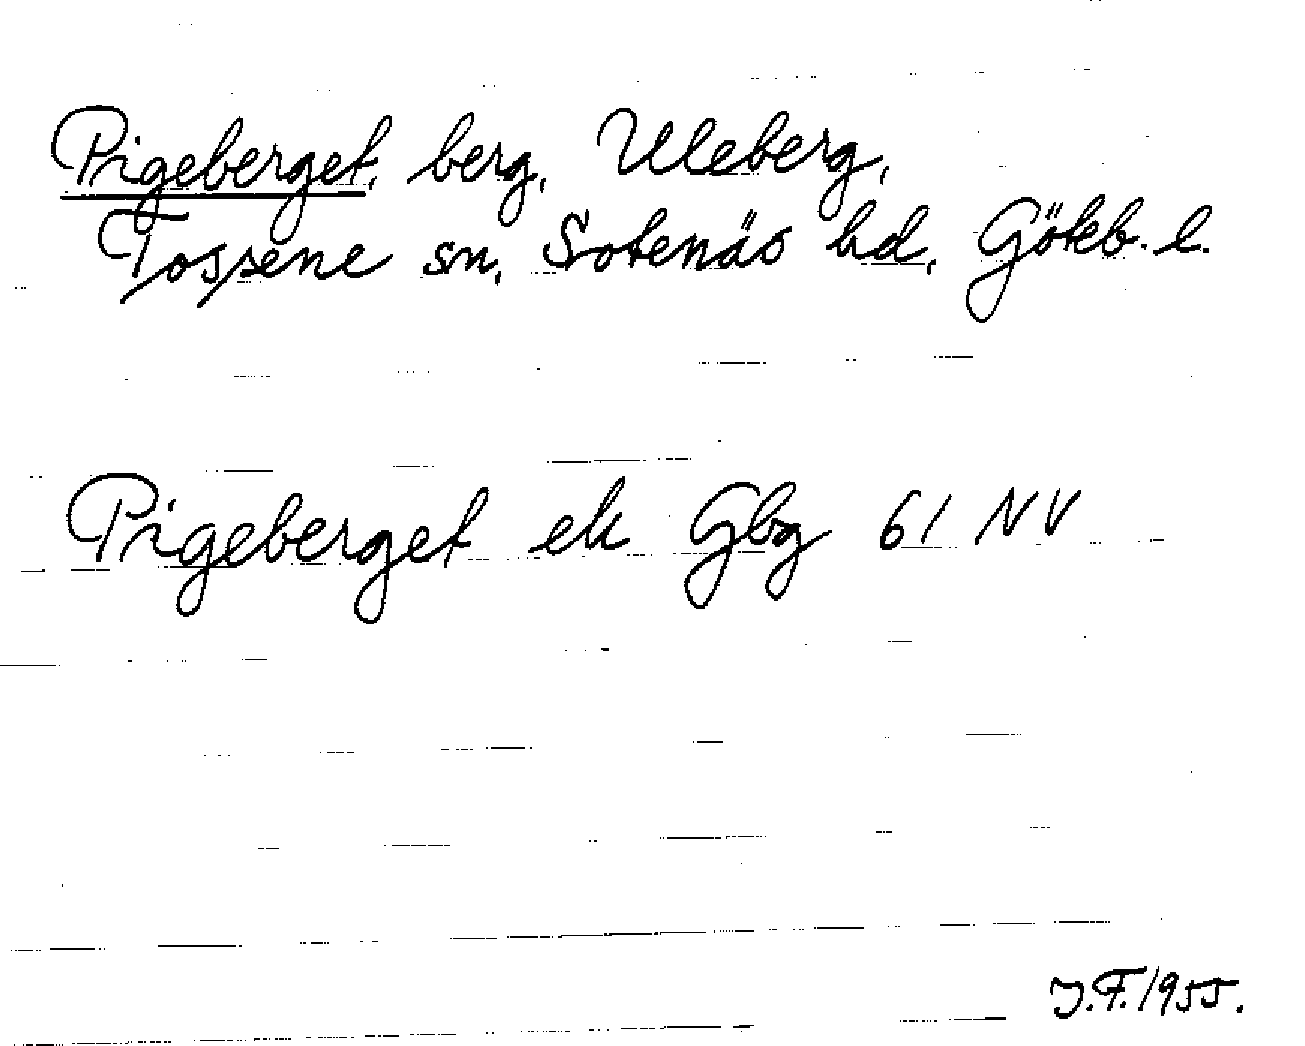 Pigeberget, berg, Uleberg,
Tossene sn, Sotenäs hd, Göteb. l.
Pigeberget ek Gbg 61 NV
J.F. 1955.